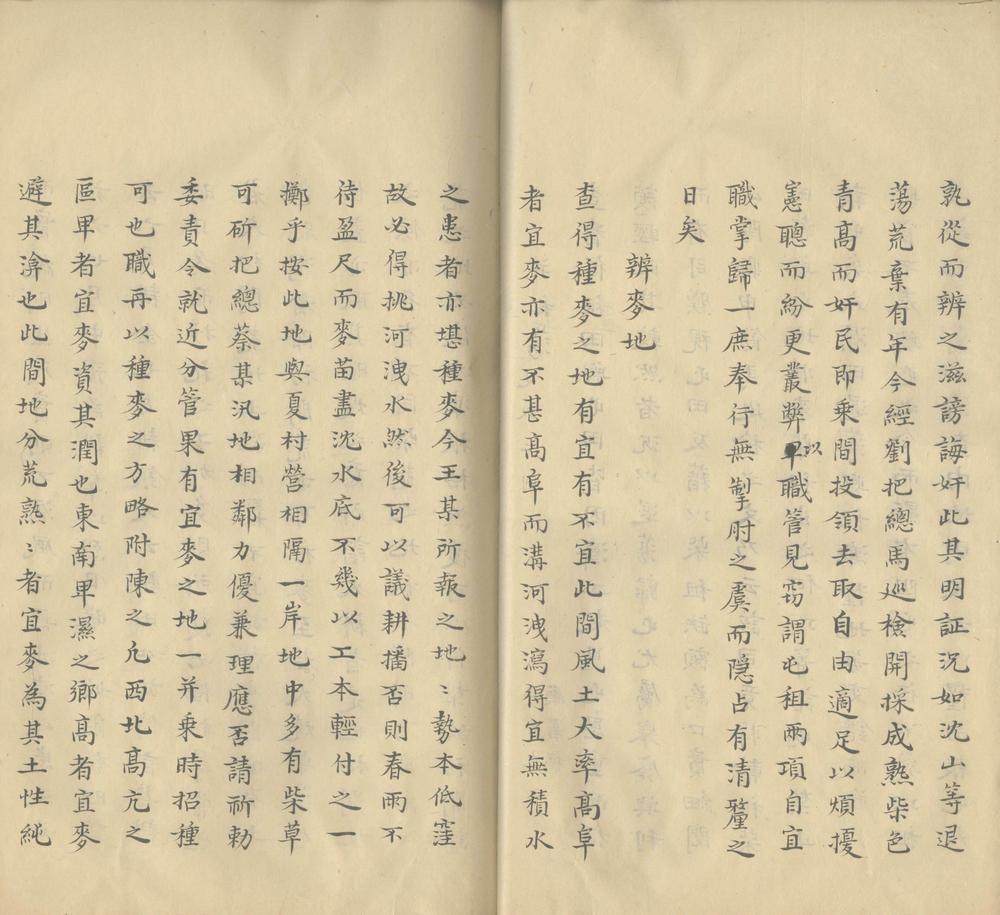 孰從而辨之滋謗誨奸此其明証況如沈山等退
蕩荒棄有年今經劉把總馬廵檢開採成熟柴色
青高而奸民即乗間投領去取自由適足以煩擾
憲聰而紛更叢弊以職管見窃謂屯租兩項自宜
職掌歸一庶奉行無掣肘之虞而隐占有清釐之
日矣
辨麥地
查得種麥之地有宜有不宜此間風土大率高阜
者宜麥亦有不甚高阜而溝河洩瀉得宜無積水
之患者亦堪種麥今王某所報之地〻勢本低窪
故必得挑河洩水然後可以議耕播否則春雨不
待盈尺而麥苗盡沈水底不幾以工本輕付之一
擲乎按此地與夏村營相隔一岸地中多有柴草
可斫把總蔡某汛地相鄰力優兼理應否請祈勅
委責令就近分管果有宜麥之地一并乗時招種
可也職再以種麥之方略附陳之凢西北高亢之
區卑者宜麥資其潤也東南卑濕之鄉高者宜麥
避其渰也此間地分荒熟〻者宜麥為其土性純